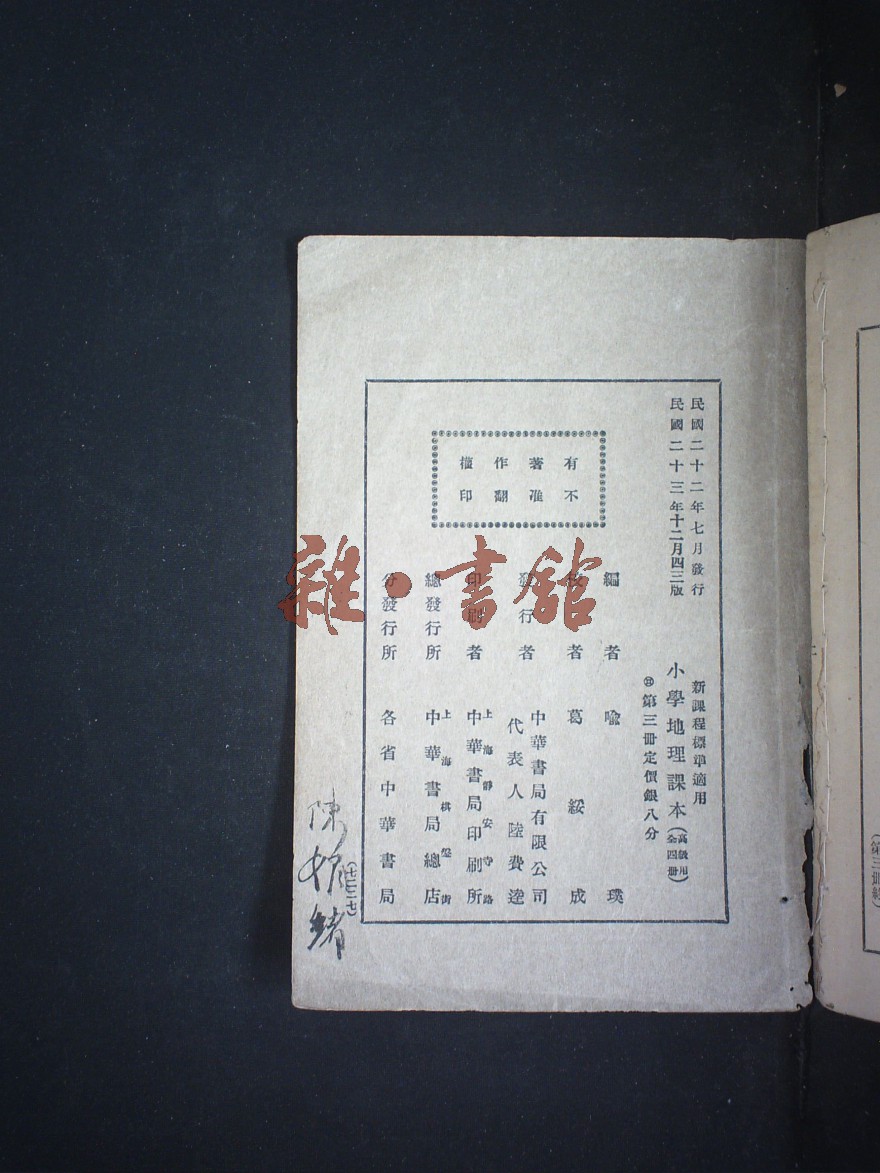 民國二十二年七月發行
民國二十三年十二月四三版
新課程標準適用
小學地理課本(高級用全四冊)
第三冊定價銀八分
有著作權
不准翻印
編者 喩璞
校者 葛綏成
發行者 中華書局有限公司
代表人 陸費逵
印刷者 上海靜安寺路
中華書局印刷所
總發行所 上海棋盤街
中華書局總店
分發行所 各省中華書局
(七二二七)
陳
緒
雜·書館